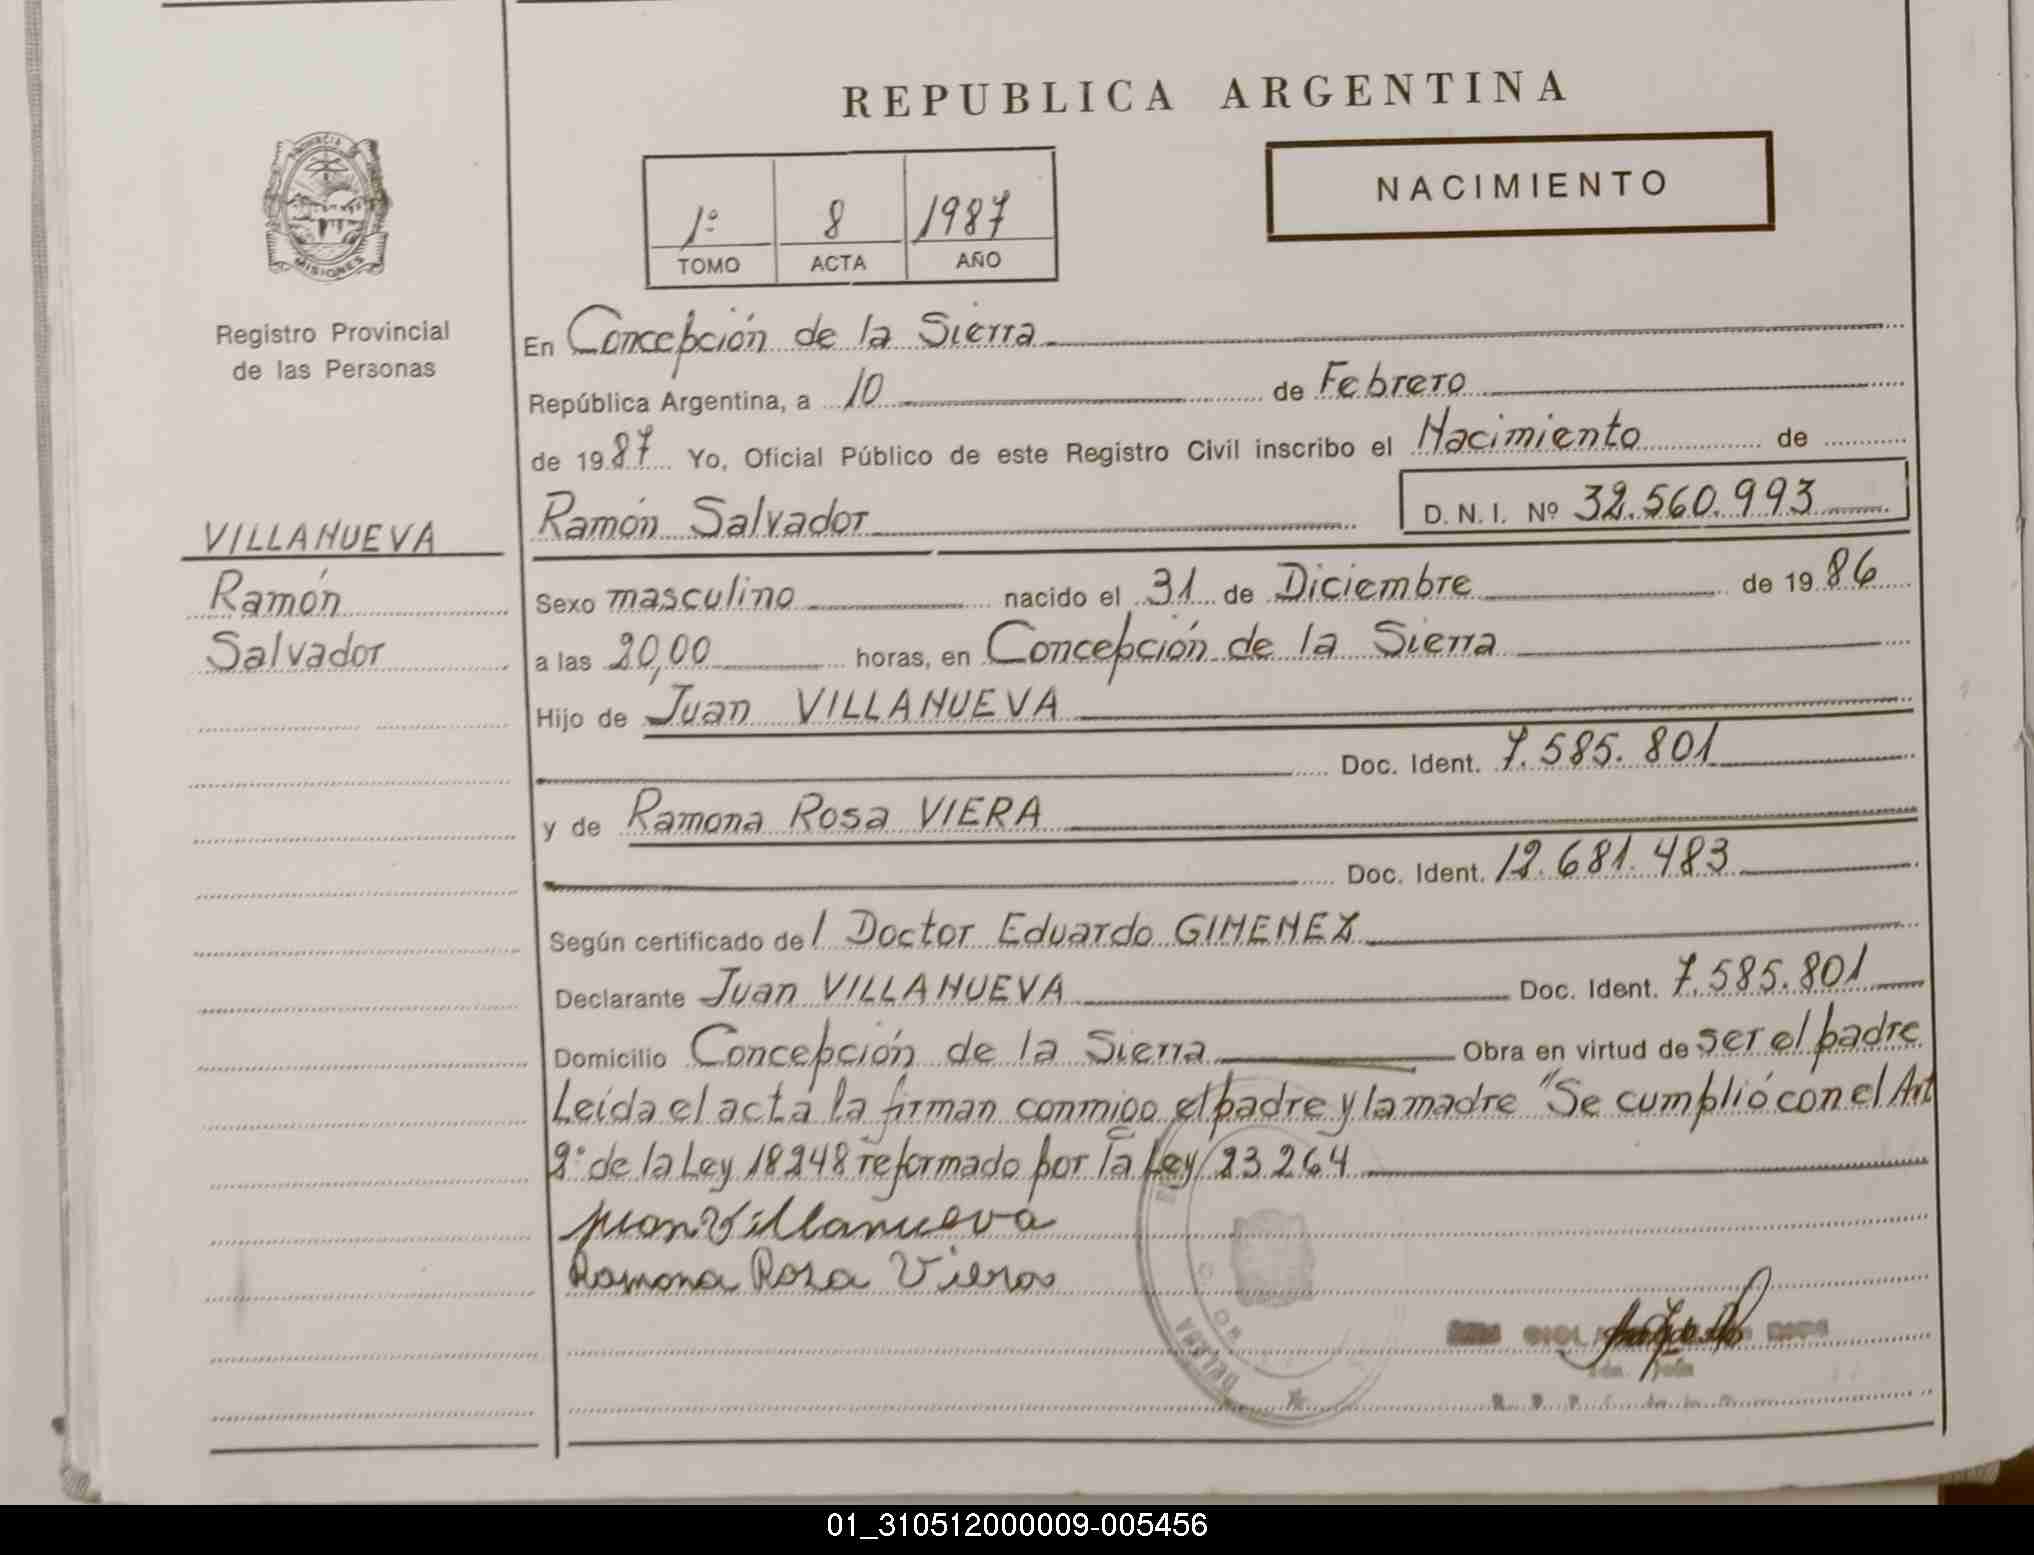 REPUBLICA ARGENTINA
NACIMIENTO
1º 8 1987
TOMO ACTA AÑO
PROVINCIA DE MISIONES
Registro Provincial
de las Personas
VILLANUEVA
Ramón
Salvador
En Concepción de la Sierra
República Argentina, a 10 de Febrero
de 1987 Yo, Oficial Público de este Registro Civil inscribo el Nacimiento de
Ramón Salvador D. N. I. Nº 32.560.993
Sexo masculino nacido el 31 de Diciembre de 1986
a las 20,00 horas, en Concepción de la Sierra
Hijo de Juan VILLANUEVA
Doc. Ident. 7.585.801
y de Ramona Rosa VIERA
Doc. Ident. 12.681.483
Según certificado del Doctor Eduardo GIMENEZ
Declarante Juan VILLANUEVA Doc. Ident. 7.585.801
Domicilio Concepción de la Sierra Obra en virtud de ser el padre
Leída el acta la firman conmigo el padre y la madre "Se cumplió con el Art
2º de la Ley 18248 reformado por la Ley 23264
Juan Villanueva
Ramona Rosa Viera
01_310512000009-005456